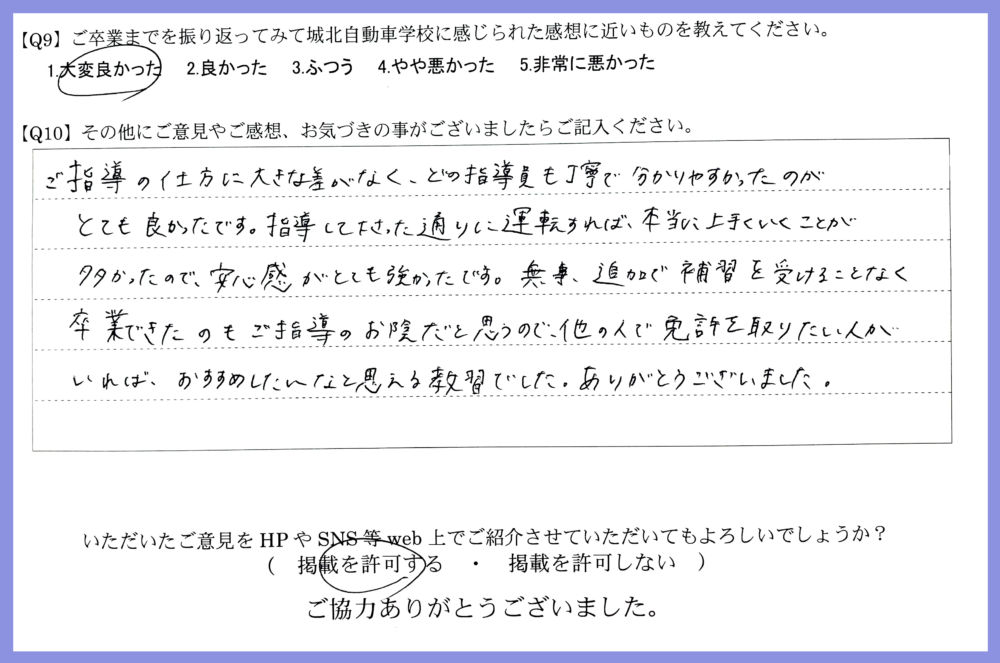 【Q9】ご卒業までを振り返ってみて城北自動車学校に感じられた感想に近いものを教えてください。
1.大変良かった 2.良かった 3.ふつう 4.やや悪かった 5.非常に悪かった
【Q10】その他にご意見やご感想、お気づきの事がございましたらご記入ください。
ご指導の仕方に大きな差がなく、どの指導員も丁寧で分かりやすかったのが
とても良かったです。指導して下さった通りに運転すれば、本当に上手くいくことが
多かったので、安心感がとても強かったです。無事、追加で補習を受けることなく
卒業できたのもご指導のお陰だと思うので、他の人で免許を取りたい人が
いれば、おすすめしたいなと思える教習でした。ありがとうございました。
いただいたご意見をHPやSNS等web上でご紹介させていただいてもよろしいでしょうか？
（ 掲載を許可する ・ 掲載を許可しない ）
ご協力ありがとうございました。